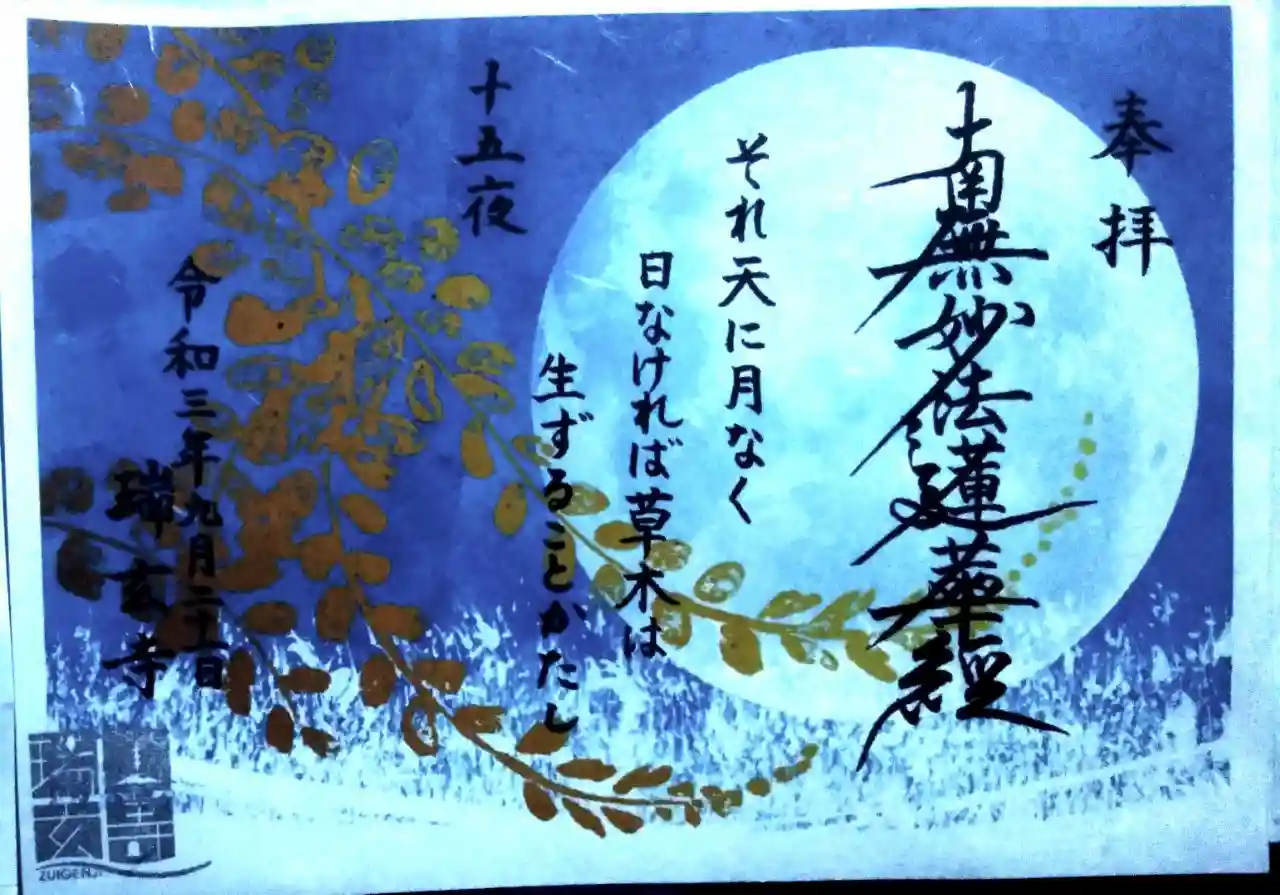 奉拝
南無妙法蓮華経
それ天に月なく
日なければ草木は
生ずることかたし
十五夜
令和三年九月二十一日
瑞玄寺
ZUIGENJI